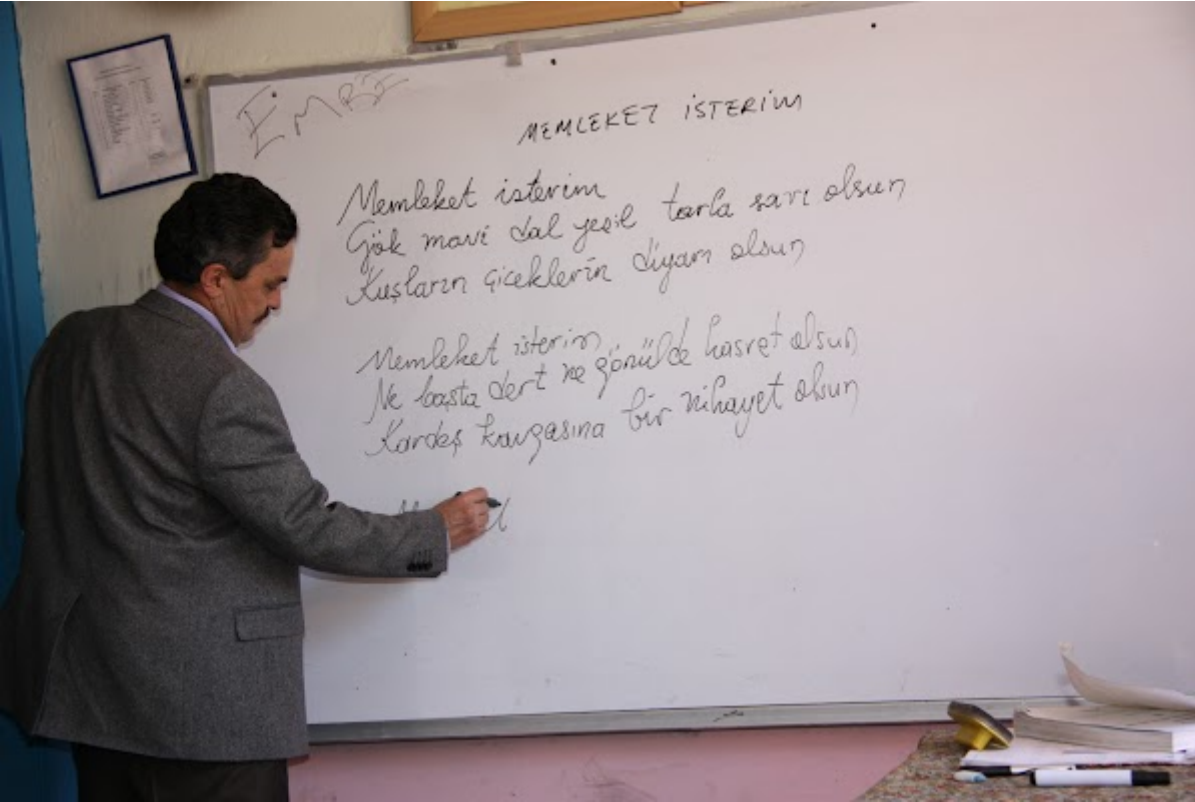 EMRE
MEMLEKET İSTERİM
Memleket isterim
Gök mavi dal yeşil tarla sarı olsun
Kuşların çiçeklerin diyarı olsun
Memleket isterim
Ne başta dert ne gönülde hasret olsun
Kardeş kavgasına bir nihayet olsun